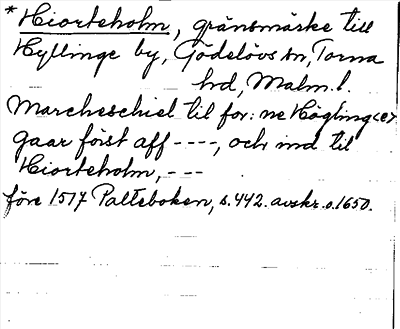 * Hiorteholm, gränsmärke till
Hyllinge by, Gödelövs sn, Torna
hd, Malm. l.
Marcheschiel til for: ne Högling<e>
gaar först aff ----, och ind til
Hiorteholm, ---
före 1517 Palteboken, s. 442. avskr. o. 1650.